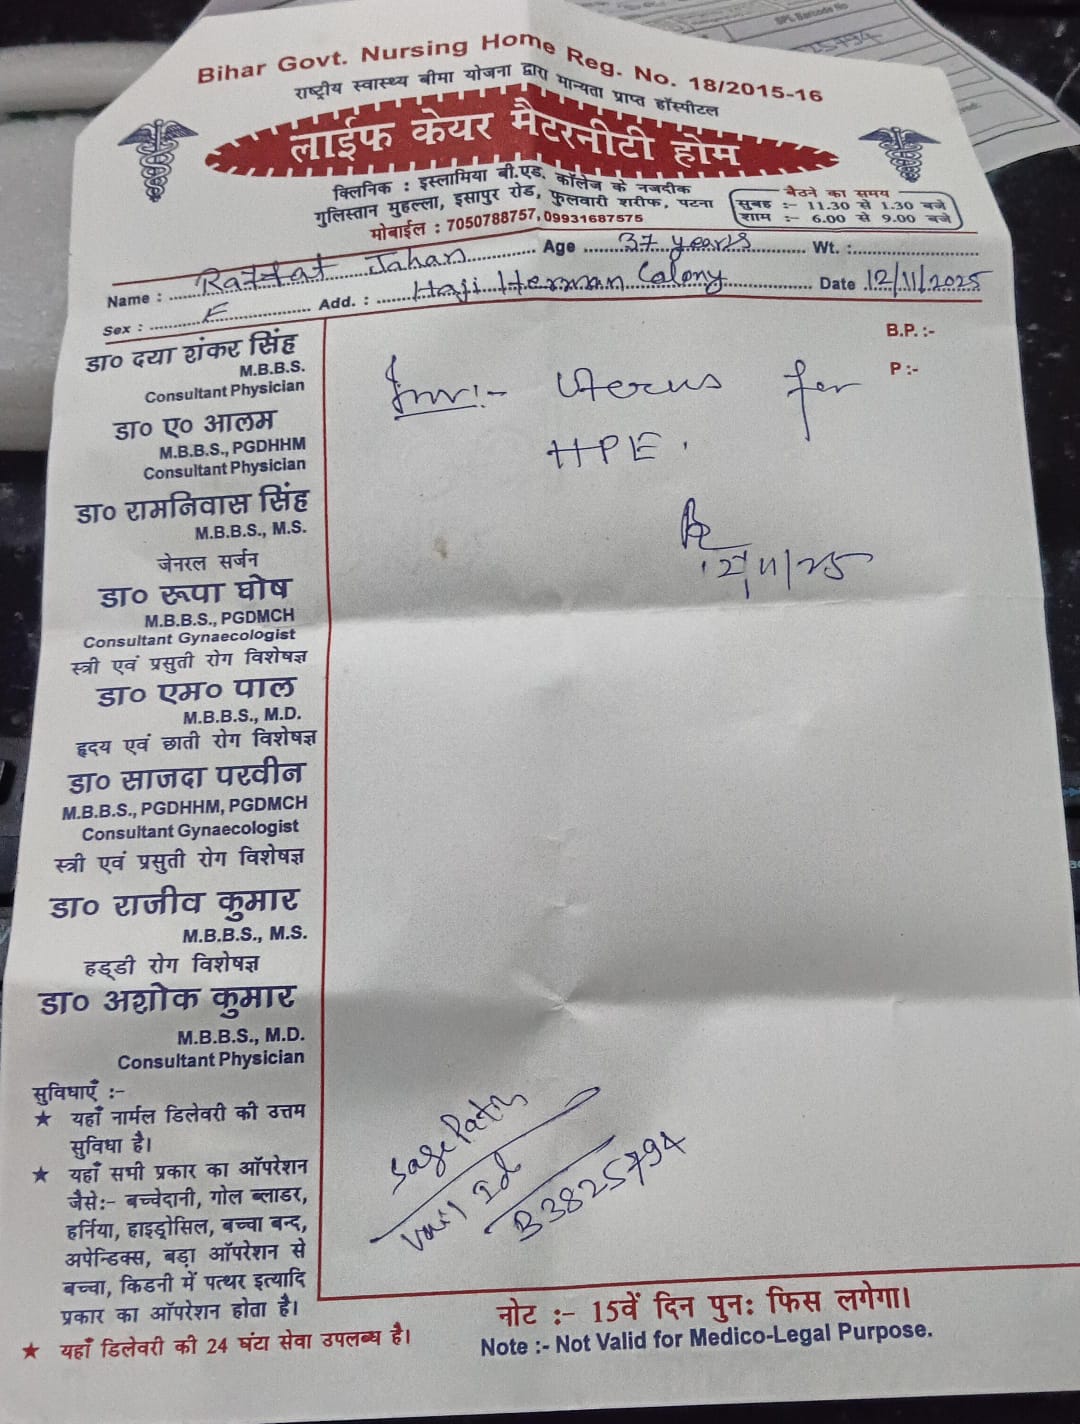 Bihar Govt. Nursing Home Reg. No. 18/2015-16
राष्ट्रीय स्वास्थ्य बीमा योजना द्वारा मान्यता प्राप्त हॉस्पीटल
लाईफ केयर मैटरनीटी होम
क्लिनिक : इस्लामिया बी.एड. कॉलेज के नजदीक
गुलिस्तान मुहल्ला, इसापुर रोड, फुलवारी शरीफ, पटना
मोबाईल : 7050788757, 09931687575
बैठने का समय
सुबह :- 11.30 से 1.30 बजे
शाम :- 6.00 से 9.00 बजे
Name : Jahan Age 37 years Wt. :
Sex : F Add. : Haji Colony Date 12/11/2025
B.P. :-
P :-
डा० दया शंकर सिंह
M.B.B.S.
Consultant Physician
डा० ए० आलम
M.B.B.S., PGDHHM
Consultant Physician
डा० रामनिवास सिंह
M.B.B.S., M.S.
जेनरल सर्जन
डा० रूपा घोष
M.B.B.S., PGDMCH
Consultant Gynaecologist
स्त्री एवं प्रसुती रोग विशेषज्ञ
डा० एम० पाल
M.B.B.S., M.D.
हृदय एवं छाती रोग विशेषज्ञ
डा० साजदा परवीन
M.B.B.S., PGDHHM, PGDMCH
Consultant Gynaecologist
स्त्री एवं प्रसुती रोग विशेषज्ञ
डा० राजीव कुमार
M.B.B.S., M.S.
हड्डी रोग विशेषज्ञ
डा० अशोक कुमार
M.B.B.S., M.D.
Consultant Physician
सुविधाएँ :-
★ यहाँ नार्मल डिलेवरी की उत्तम
सुविधा है।
★ यहाँ सभी प्रकार का ऑपरेशन
जैसे:- बच्चेदानी, गोल ब्लाडर,
हर्निया, हाइड्रोसिल, बच्चा बन्द,
अपेन्डिक्स, बड़ा ऑपरेशन से
बच्चा, किडनी में पत्थर इत्यादि
प्रकार का ऑपरेशन होता है।
★ यहाँ डिलेवरी की 24 घंटा सेवा उपलब्ध है।
Inv:- Uterus for
HPE.
12/11/25
B3825794
नोट :- 15वें दिन पुनः फिस लगेगा।
Note :- Not Valid for Medico-Legal Purpose.
BPL Barcode No